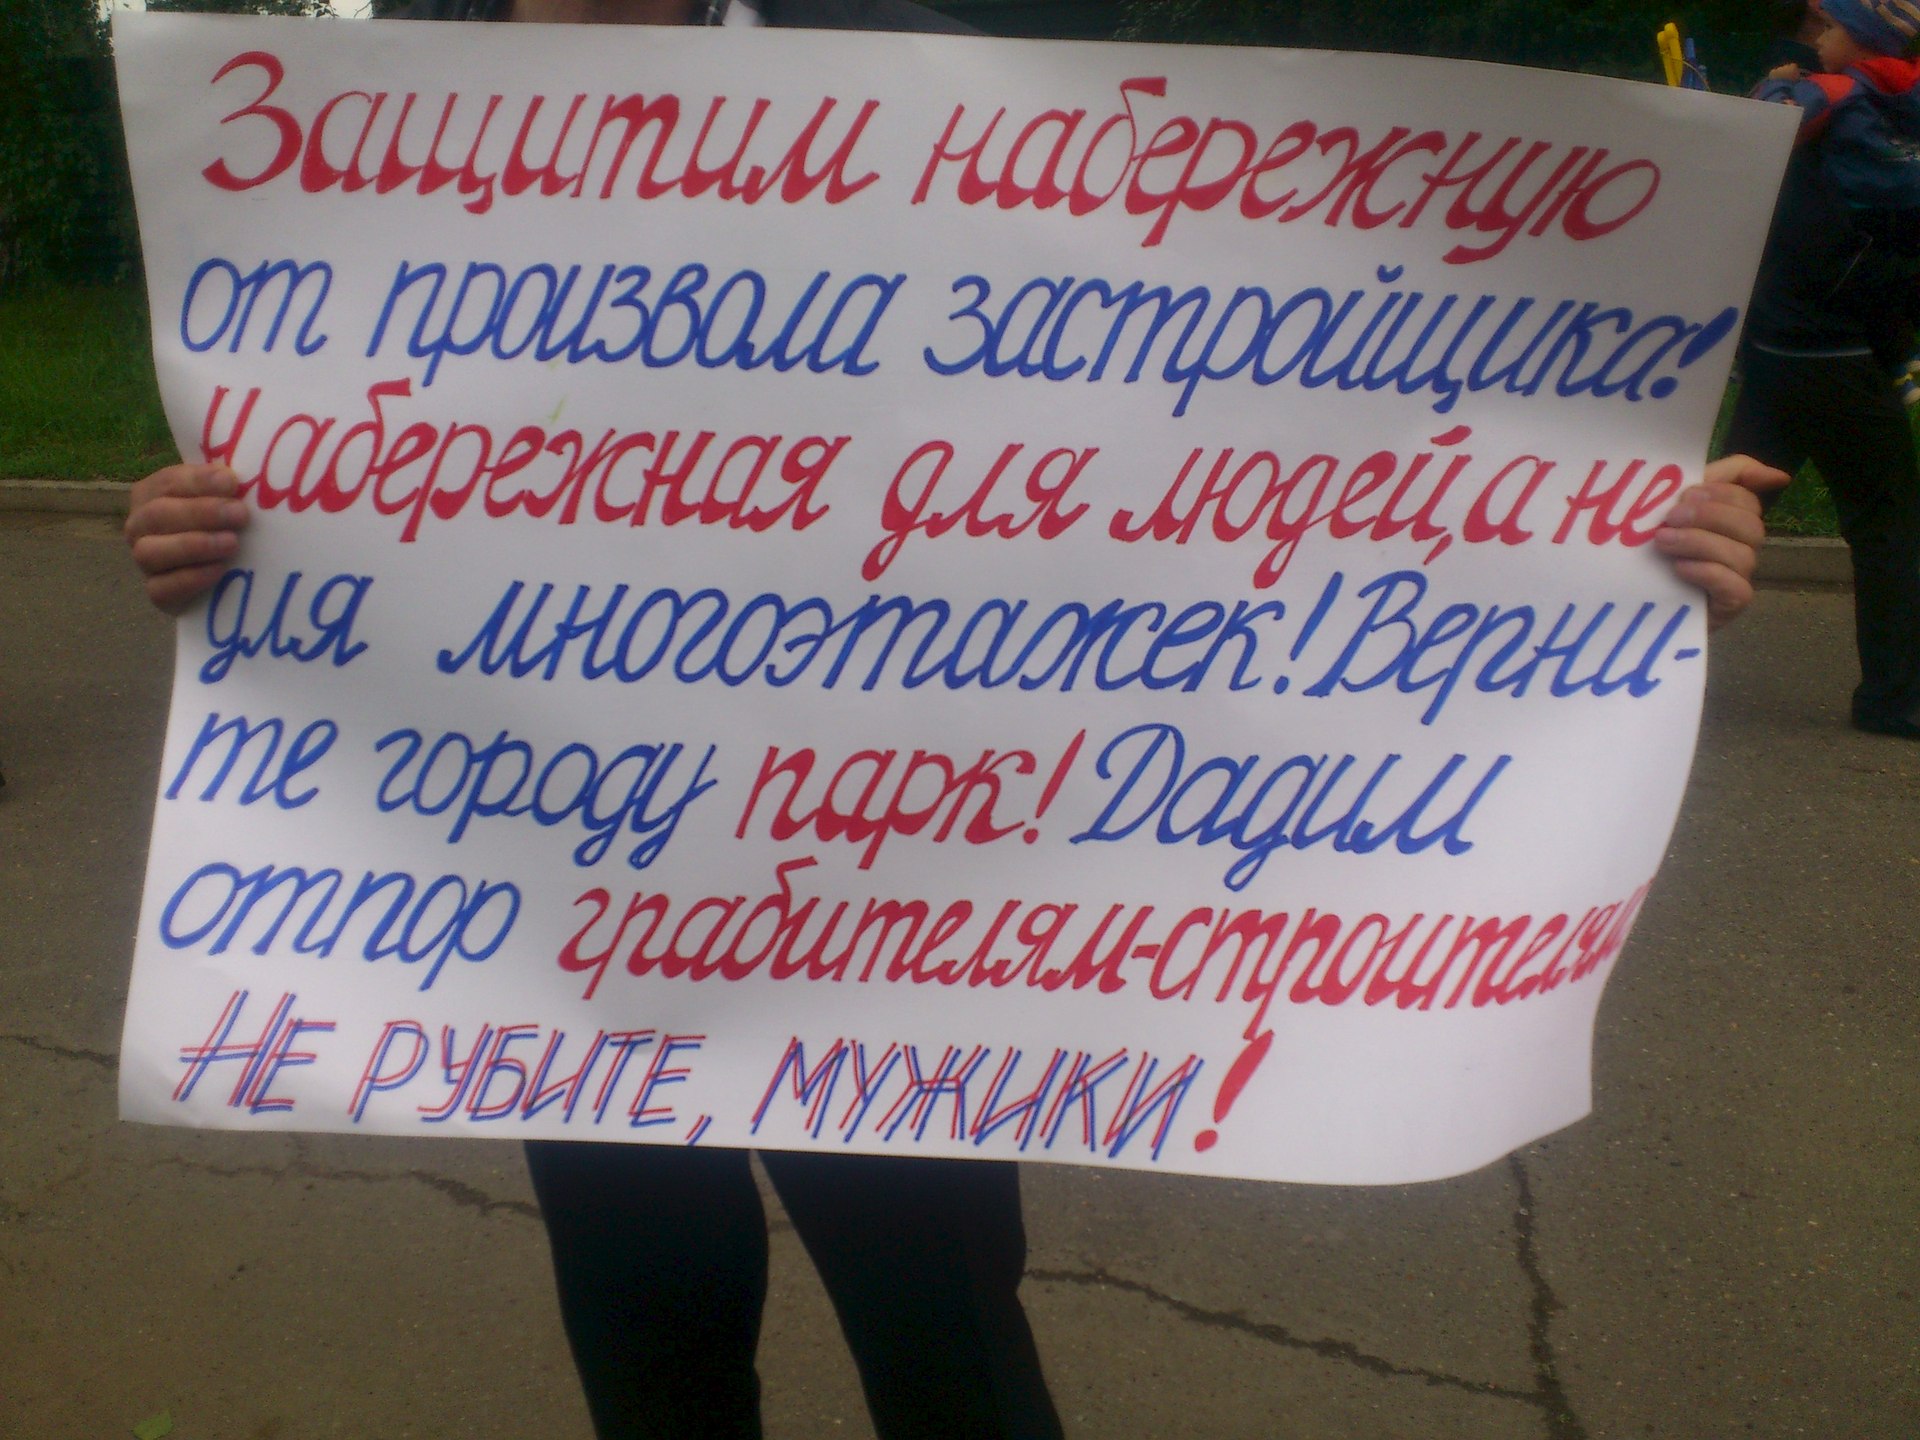 Защитим набережную
от произвола застройщика!
Набережная для людей, а не
для многоэтажек! Верни-
те городу парк! Дадим
отпор грабителям-строителям
НЕ РУБИТЕ, МУЖИКИ!